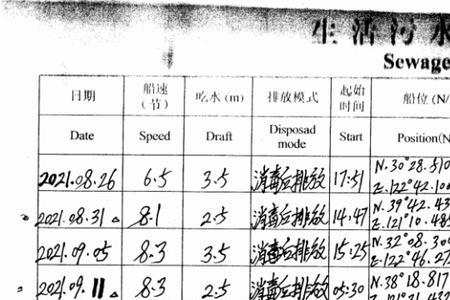 生活污水
Sewage
日期 船速(节) 吃水(m) 排放模式 起始时间 船位(N/
Date Speed Draft Disposad mode Start Position(N
2021.08.26 6.5 3.5 消毒后排放 17:51 N.30°28.510 E.122°42.100
2021.08.31 8.1 2.5 消毒后排放 14:47 N.39°42.43 E.121°10.485
2021.09.05 8.3 3.5 消毒后排放 15:25 N.32°08.300 E.122°46.27
2021.09.11 8.3 2.5 消毒后排放 05:30 N.38°18.817